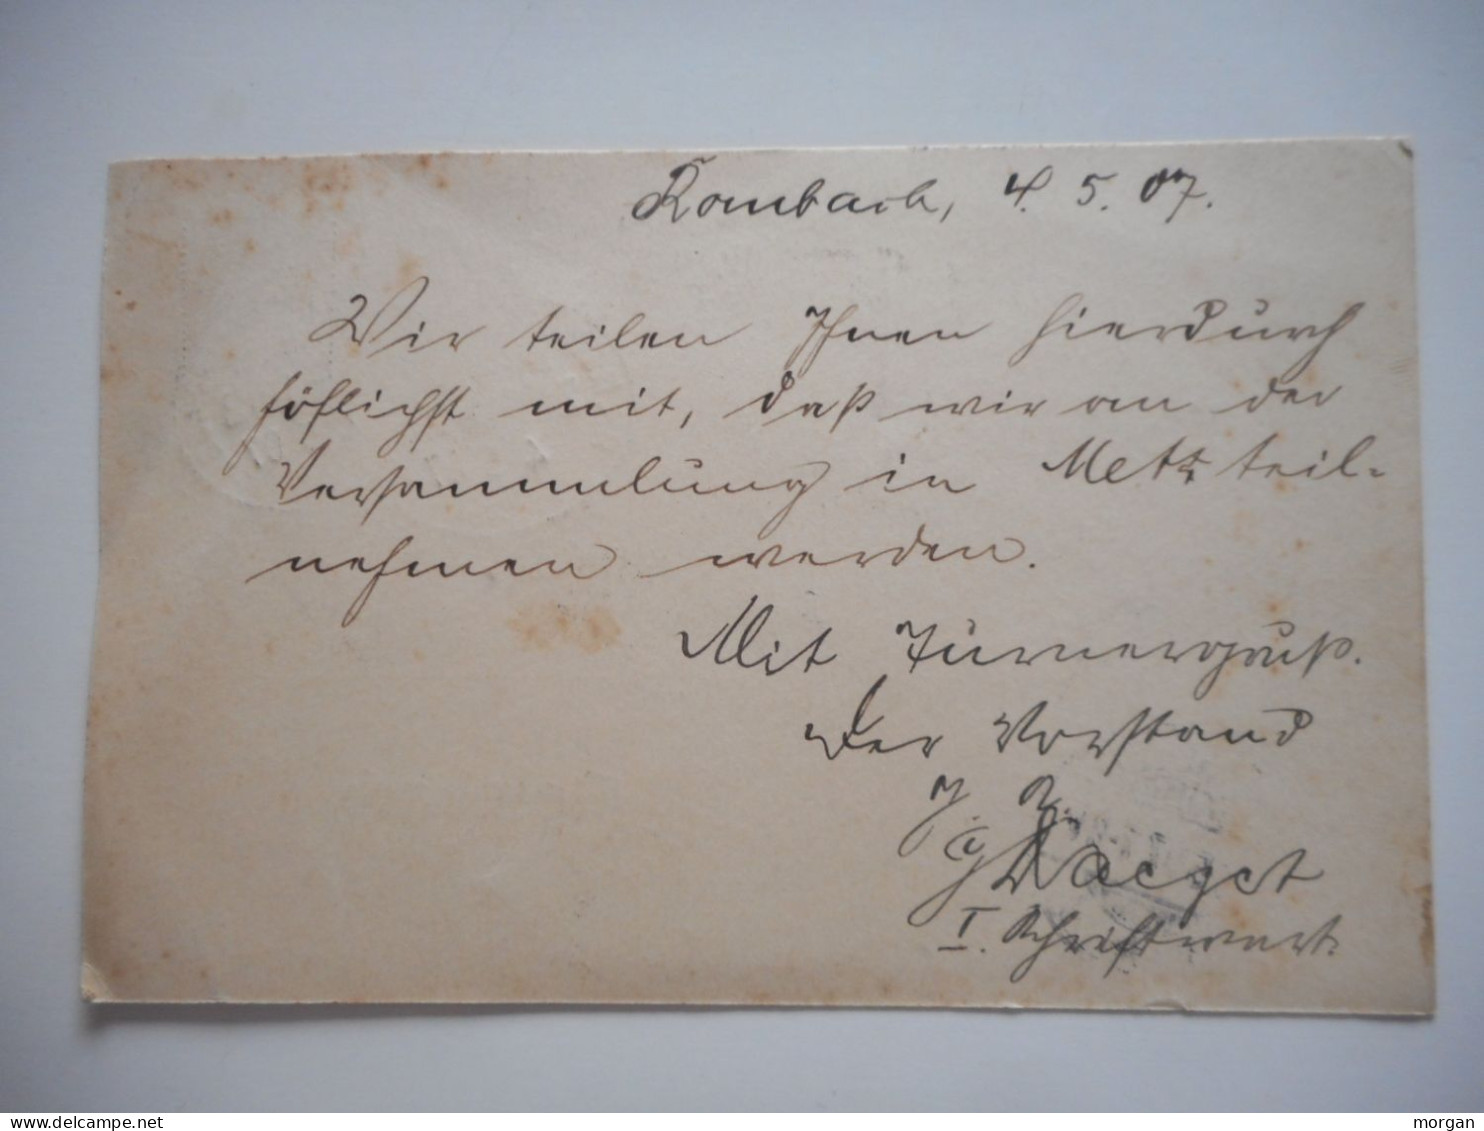 Rombach, 4. 5. 07.
Wir teilen Ihnen hierdurch
höflichst mit, daß wir an der
Versammlung in Metz teil-
nehmen werden.
Mit Turnergruß.
Der Vorstand
J. A.
I. Schriftwart.
morgan